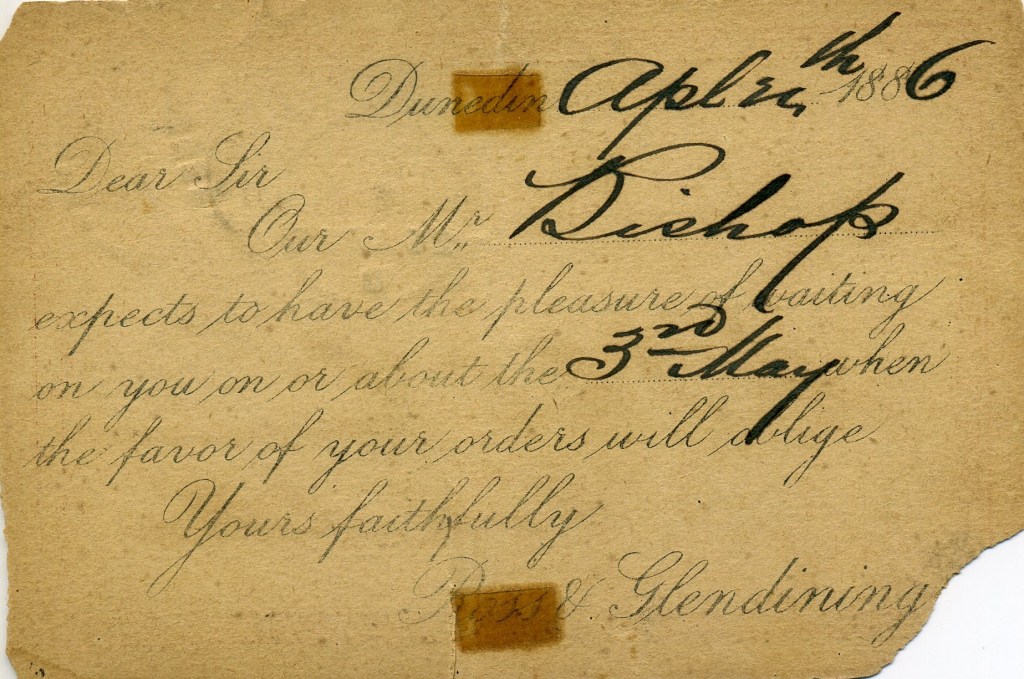 Dunedin Apl th 1886
Dear Sir
Our Mr. Bishop
expects to have the pleasure of waiting
on you on or about the 3rd May when
the favor of your orders will oblige
Yours faithfully
Ross & Glendining